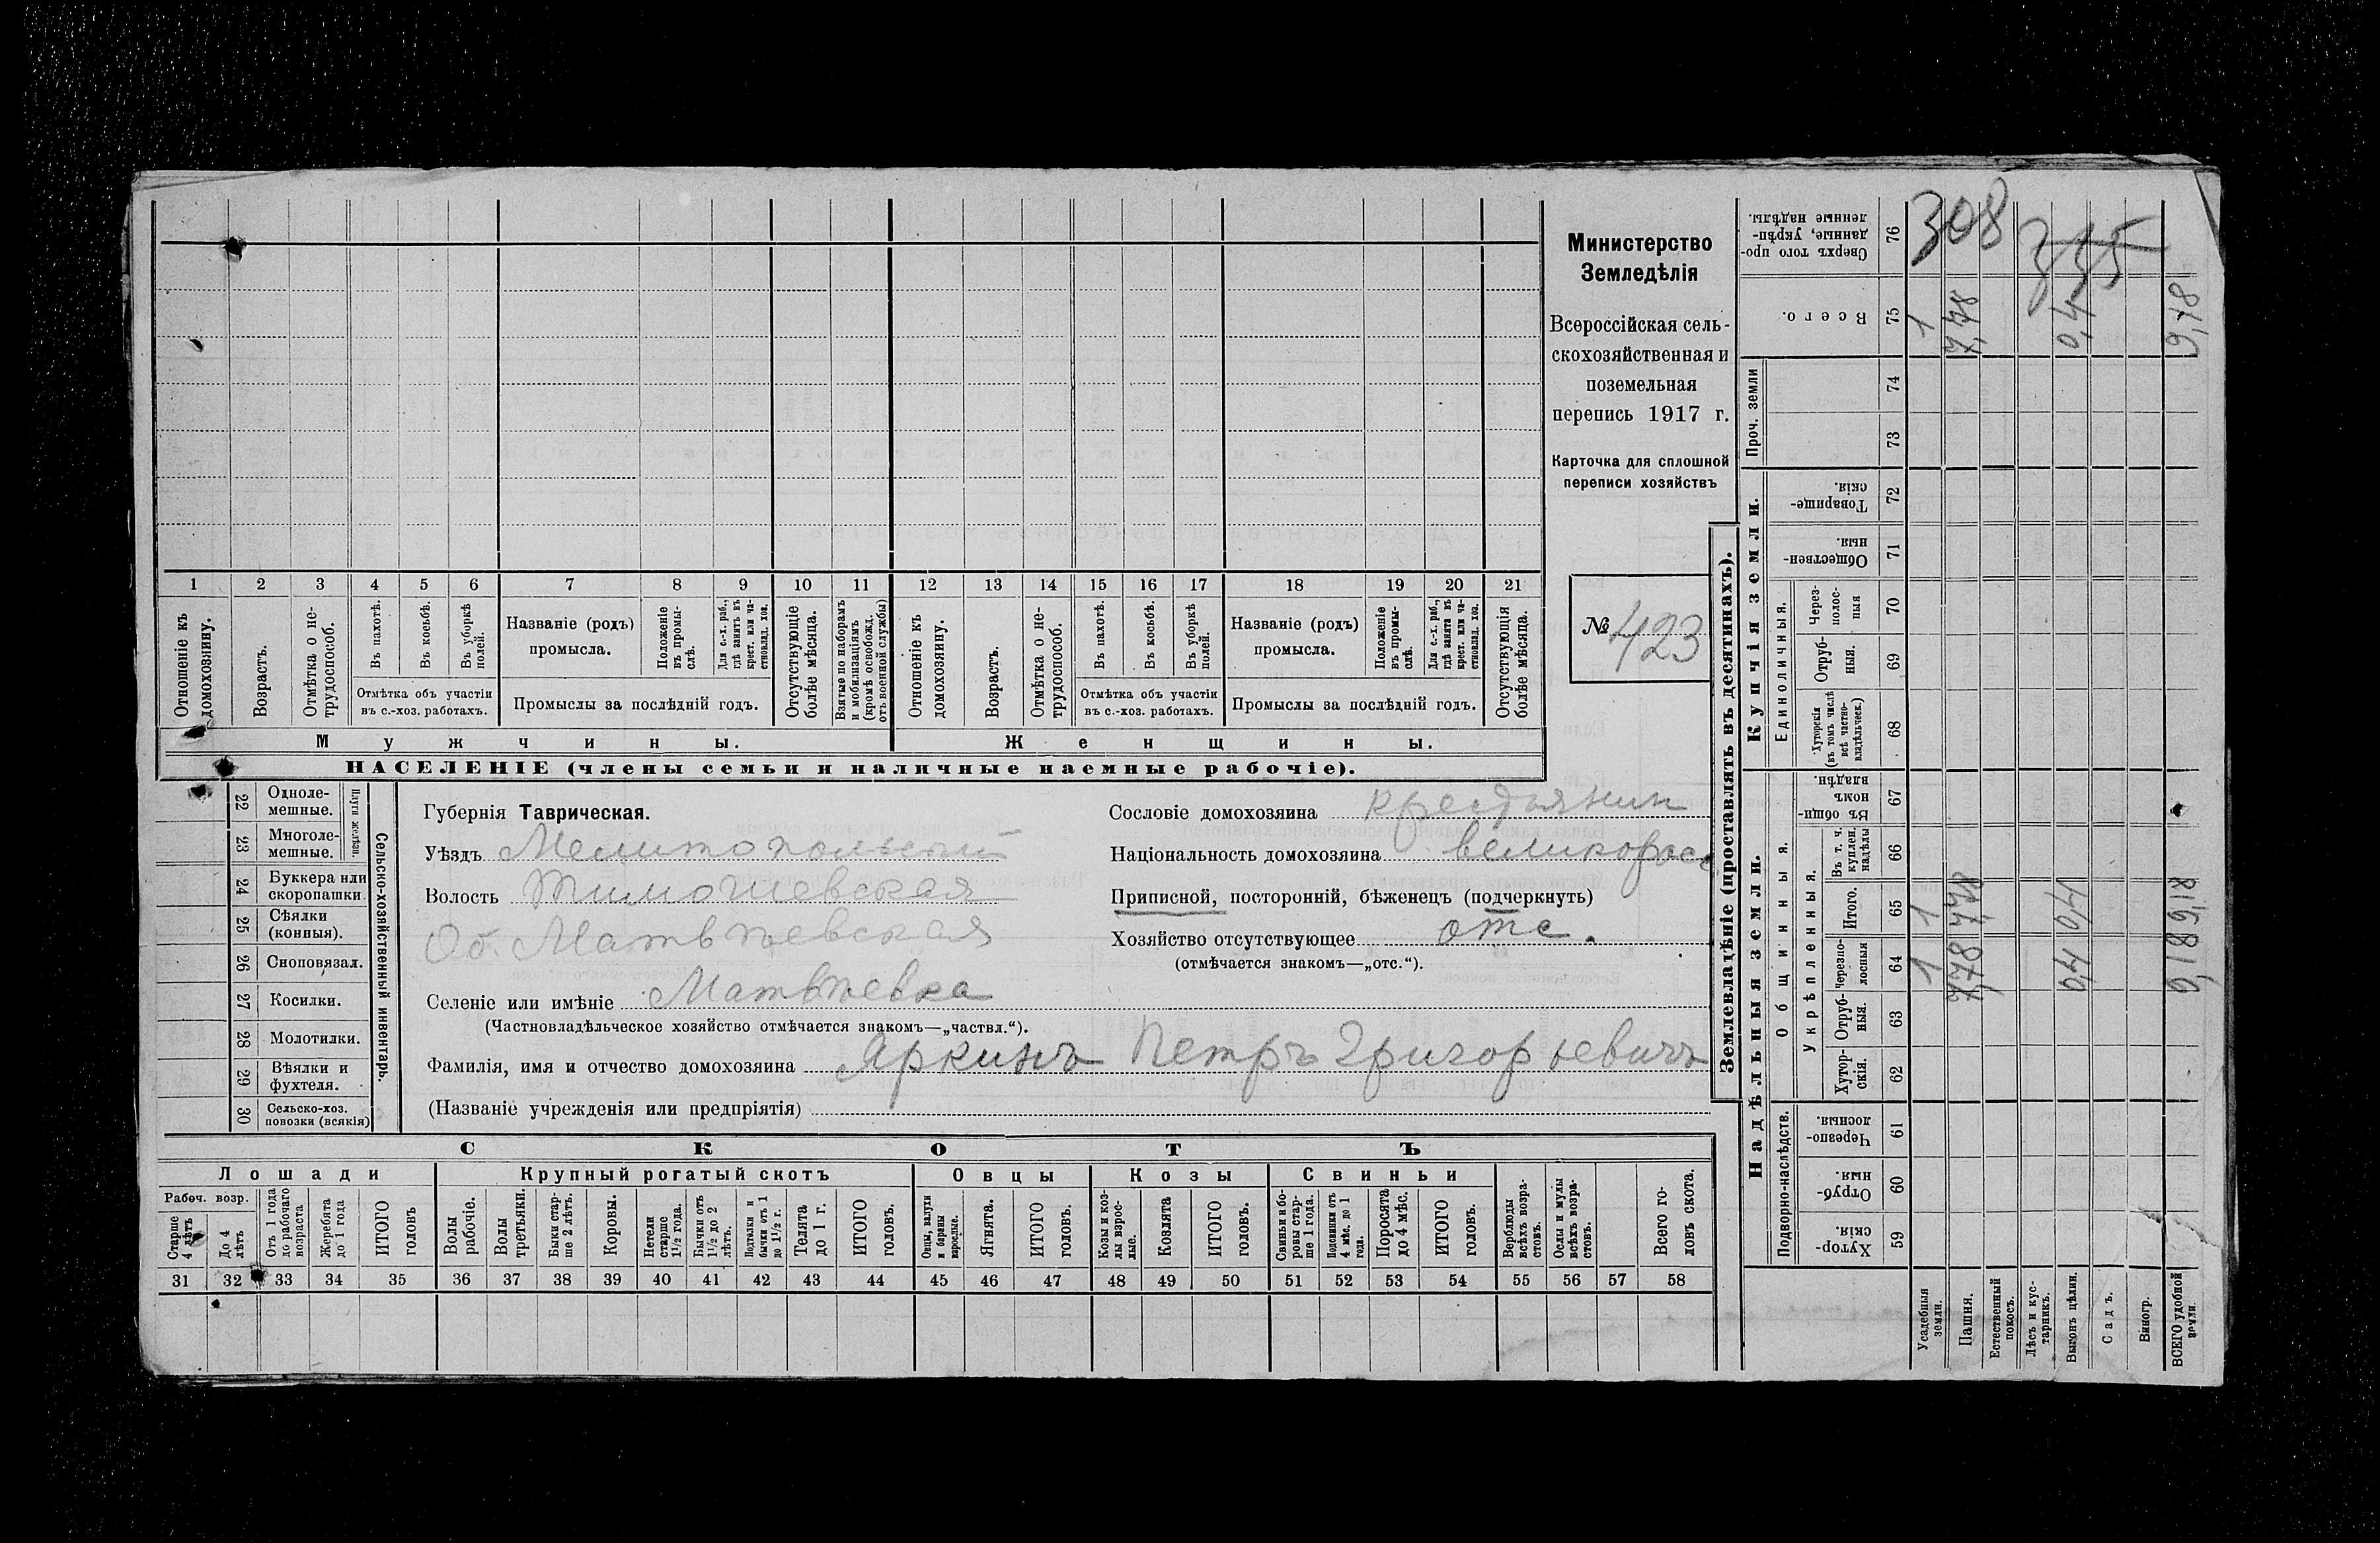 Министерство
Земледѣлія
Всероссійская сель-
скохозяйственная и
поземельная
перепись 1917 г.
Карточка для сплошной
переписи хозяйствъ
№ 423
1 2 3 4 5 6 7 8 9 10 11 12 13 14 15 16 17 18 19 20 21
Отношеніе къ домохозяину.
Возрастъ.
Отмѣтка о не-трудоспособ.
Въ пахотѣ.
Въ косьбѣ.
Въ уборкѣ полей.
Отмѣтка объ участіи
въ с.-хоз. работахъ.
Названіе (родъ)
промысла.
Положеніе въ промы-слѣ.
Для с.-х. раб., гдѣ занятъ въ крест. или ча-стновлад. хоз.
Промыслы за послѣдній годъ.
Отсутствующіе болѣе мѣсяца.
Взятые по наборамъ и мобилизаціямъ (кромѣ освобожд. отъ военной службы)
Отношеніе къ домохозяину.
Возрастъ.
Отмѣтка о не-трудоспособ.
Въ пахотѣ.
Въ косьбѣ.
Въ уборкѣ полей.
Отмѣтка объ участіи
въ с.-хоз. работахъ.
Названіе (родъ)
промысла.
Положеніе въ промы-слѣ.
Для с.-х. раб., гдѣ занята въ крест. или ча-стновлад. хоз.
Промыслы за послѣдній годъ.
Отсутствующія болѣе мѣсяца.
Мужчины. Женщины.
НАСЕЛЕНІЕ (члены семьи и наличные наемные рабочіе).
22 Одноле-мешные.
23 Многоле-мешные.
Плуги желѣзн.
24 Буккера или скоропашки.
25 Сѣялки (конныя).
26 Сноповязал.
27 Косилки.
28 Молотилки.
29 Вѣялки и фухтеля.
30 Сельско-хоз. повозки (всякія)
Сельско-хозяйственный инвентарь.
Губернія Таврическая.
Уѣздъ Мелитопольскій
Волость Тимошевская
Об. Матвѣевская
Селеніе или имѣніе Матвѣевка
(Частновладѣльческое хозяйство отмѣчается знакомъ—„частвл.“).
Фамилія, имя и отчество домохозяина Яркинъ Петръ Григорьевичъ
(Названіе учрежденія или предпріятія)
Сословіе домохозяина крестьянин
Національность домохозяина великоросс
Приписной, посторонній, бѣженец (подчеркнуть)
Хозяйство отсутствующее отс.
(отмѣчается знакомъ—„отс.“).
СКОТЪ
Лошади Крупный рогатый скотъ Овцы Козы Свиньи
Рабоч. возр.
Старше 4 лѣтъ
До 4 лѣтъ
Отъ 1 года до рабочаго возраста
Жеребята до 1 года
ИТОГО головъ
Волы рабочіе.
Волы третьяки.
Быки стар-ше 2 лѣтъ.
Коровы.
Нетели старше 1½ года.
Бычки отъ 1½ до 2 лѣтъ.
Подтелки и бычки отъ 1 до 1½ г.
Телята до 1 г.
ИТОГО головъ.
Овцы, валухи и бараны взрослые.
Ягнята.
ИТОГО головъ.
Козы и коз-лы взрос-лые.
Козлята
ИТОГО головъ.
Свиньи и бо-ровы стар-ше 1 года.
Подсвинки отъ 4 мѣс. до 1 года.
Поросята до 4 мѣс.
ИТОГО головъ.
Верблюды всѣхъ возра-стовъ.
Ослы и мулы всѣхъ возра-стовъ.
Всего го-ловъ скота.
31 32 33 34 35 36 37 38 39 40 41 42 43 44 45 46 47 48 49 50 51 52 53 54 55 56 57 58
Землевладѣніе (проставлять въ десятинахъ).
Надѣльныя земли. Купчія земли. Проч. земли
Подворно-наслѣдств.
Общинныя.
Укрѣпленныя.
Единоличныя.
Хутор-скія. 59
Отруб-ныя. 60
Черезпо-лосныя. 61
Хутор-скія. 62
Отруб-ныя. 63
Черезпо-лосныя 64
Итого. 65
Въ т. ч. куплен. надѣлы 66
Въ общин-номъ владѣн. 67
Хуторскія (въ томъ числѣ всѣ частно-владѣльческ.) 68
Отруб-ныя. 69
Через-полос-ныя 70
Обществен-ныя. 71
Товарище-скія. 72
73
74
Всего. 75
Сверхъ того про-данные, укрѣп-ленные надѣлы. 76
Усадебныя земли. 1 1 1
Пашня. 7,78 7,78 7,78
Естественный покосъ.
Лѣсъ и кус-тарникъ.
Выгонъ цѣлин. 0,4 0,4 0,4
Садъ.
Виногр.
ВСЕГО удобной земли. 9,18 9,18 9,18
308